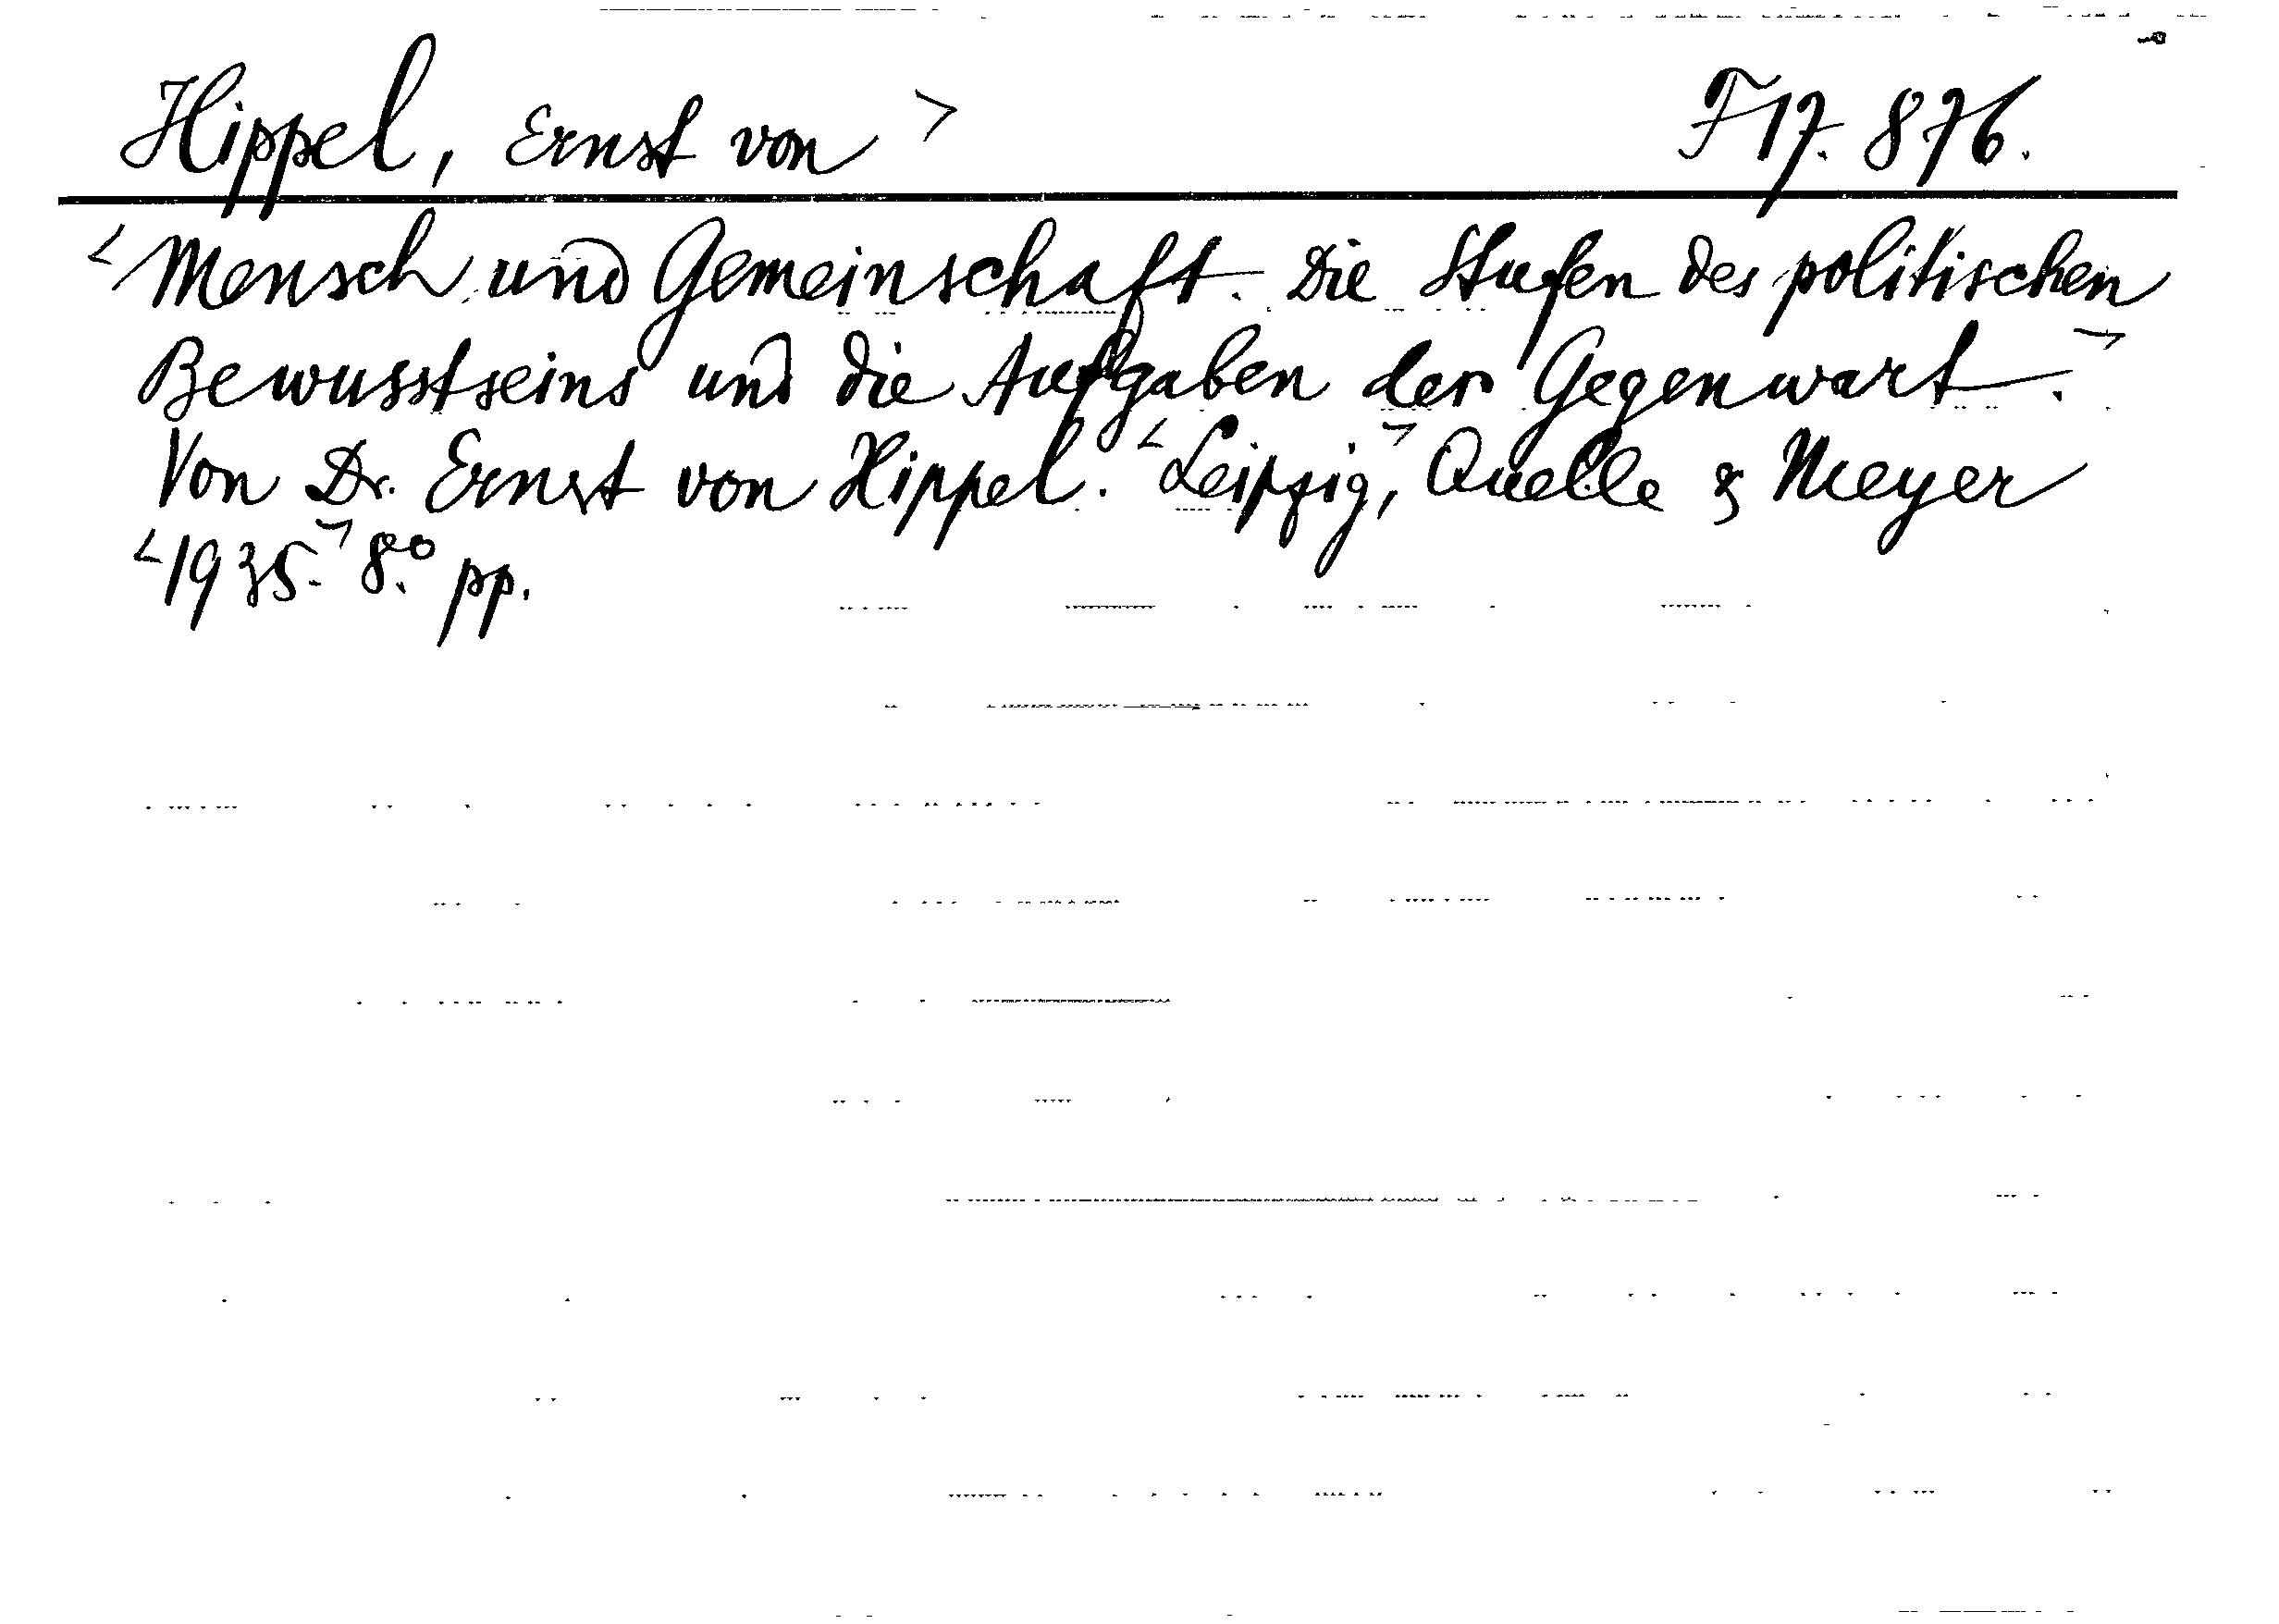 Hippel, Ernst von > F 17. 876.
< Mensch und Gemeinschaft. Die Stufen des politischen
Bewusstseins und die Aufgaben der Gegenwart. >
Von Dr. Ernst von Hippel. < Leipzig, > Quelle & Meyer
< 1935. > 8.° pp.